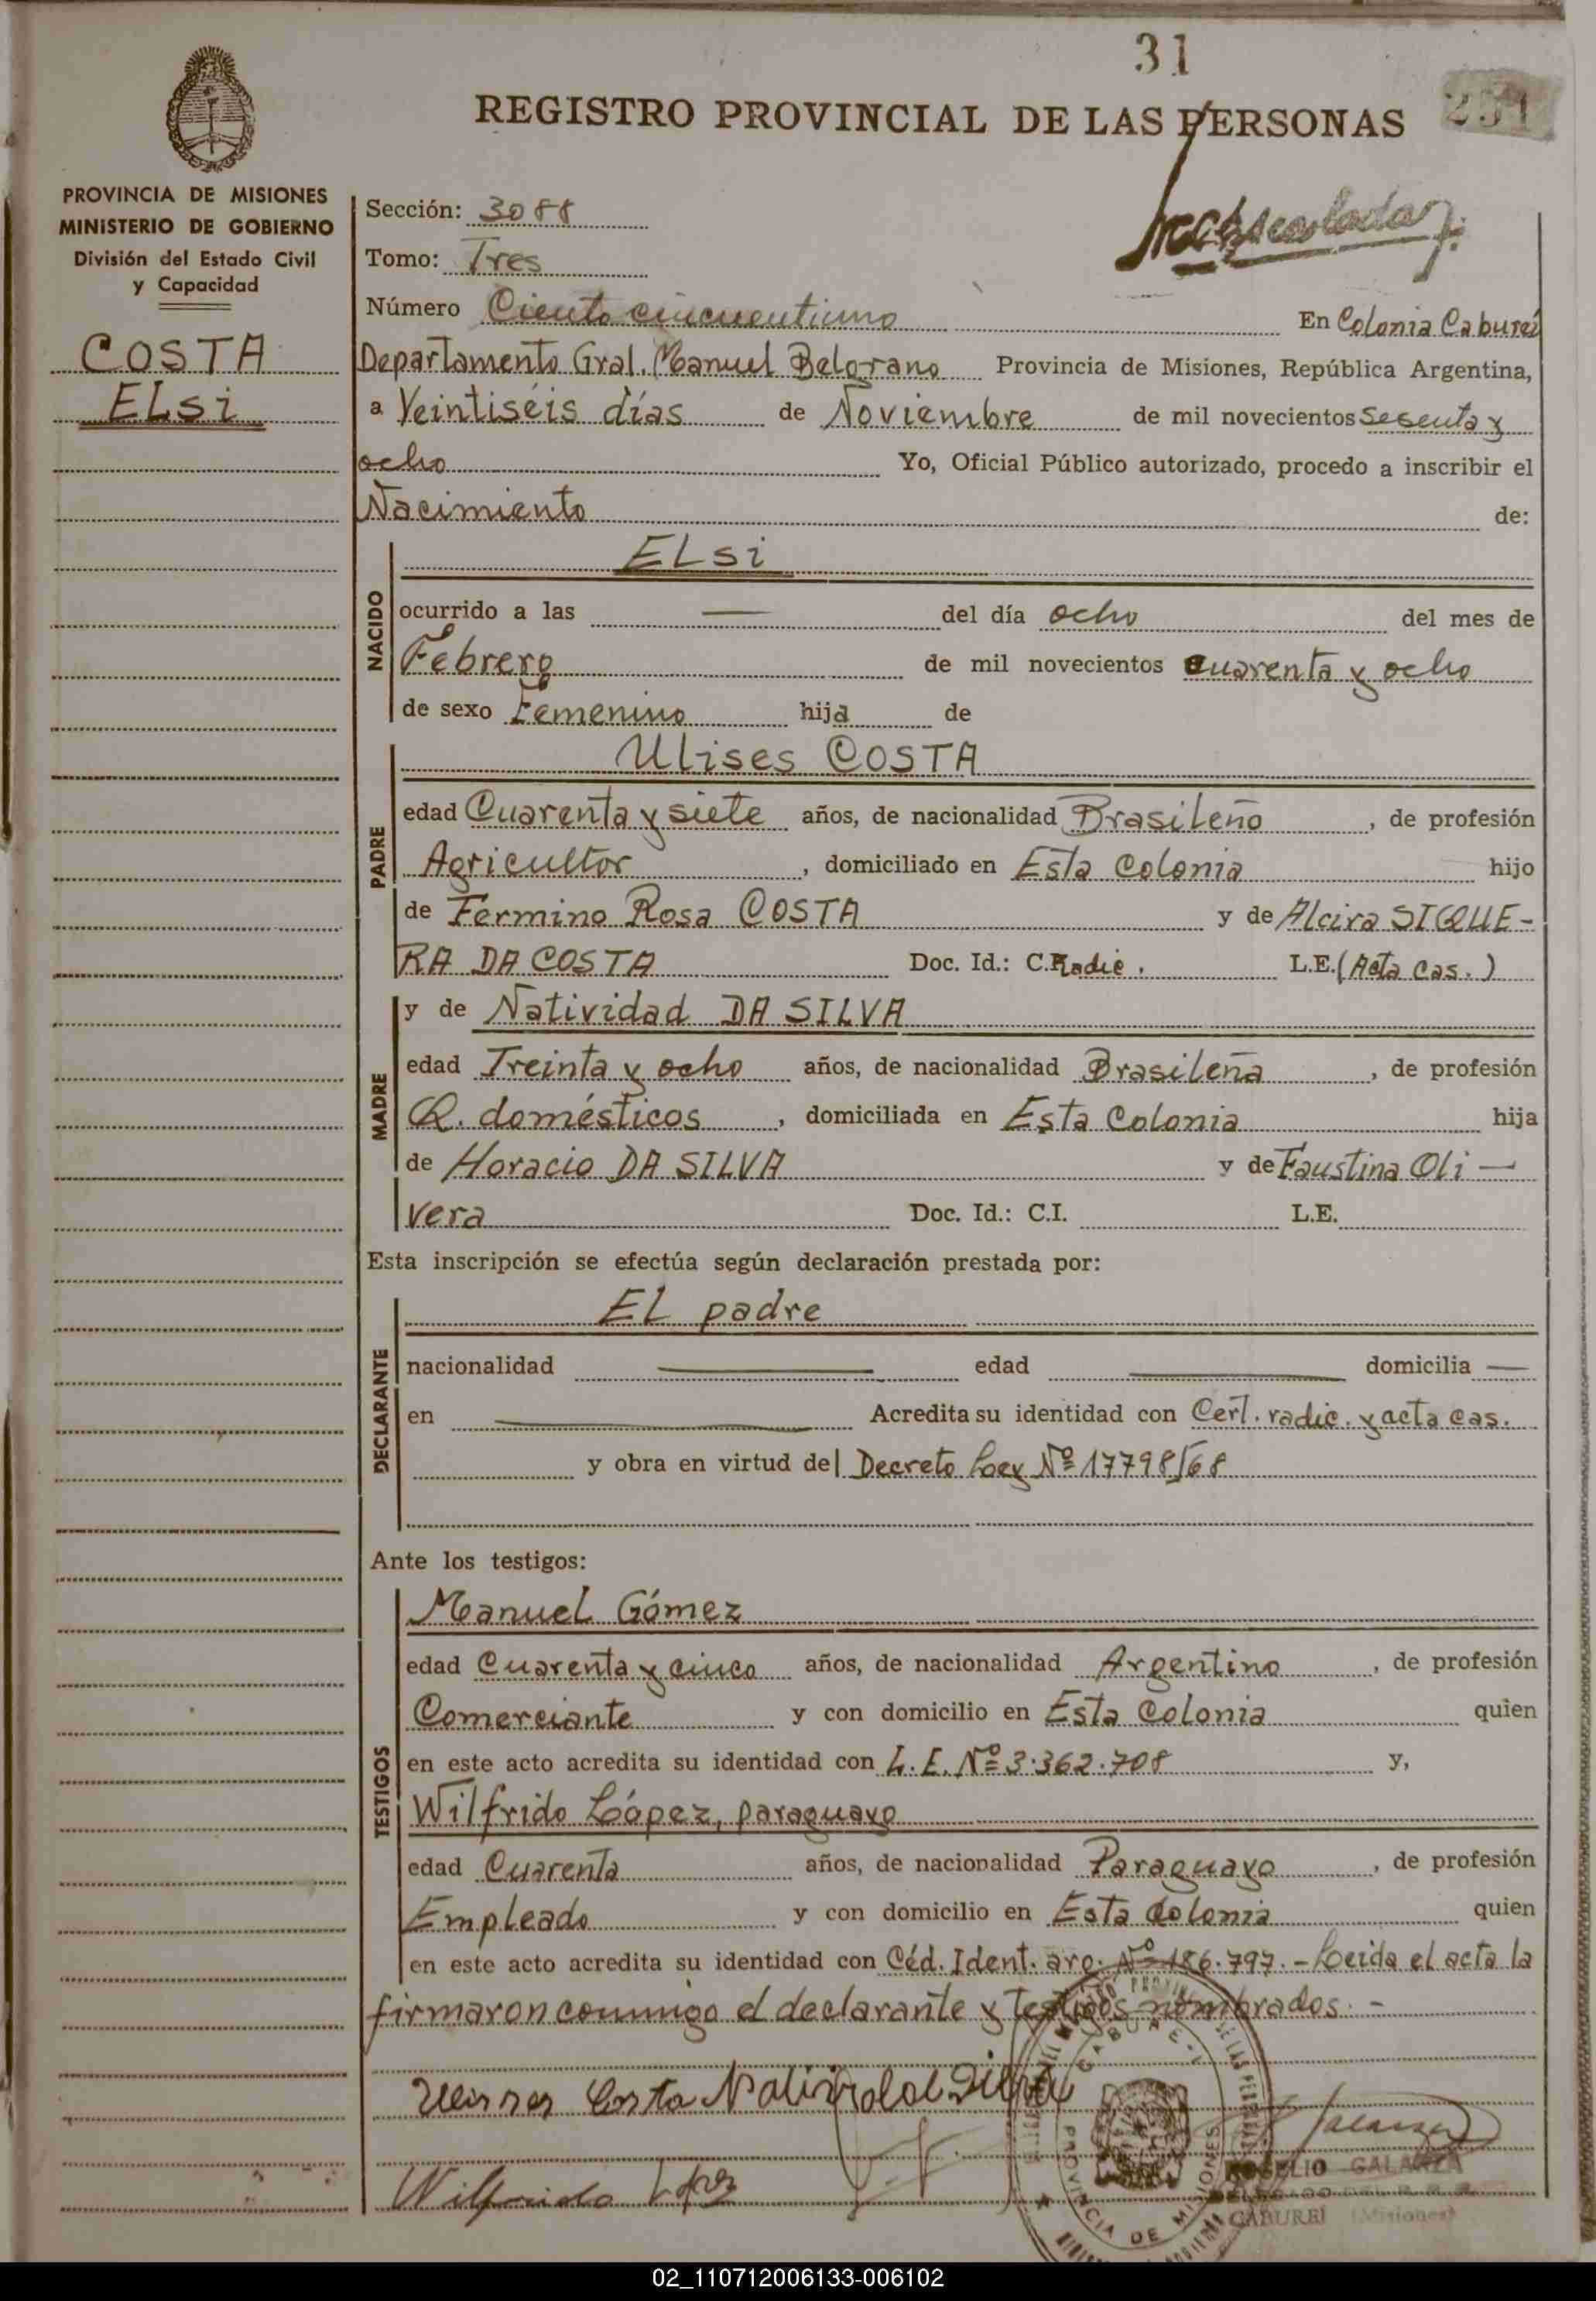 31
251
REGISTRO PROVINCIAL DE LAS PERSONAS
PROVINCIA DE MISIONES
MINISTERIO DE GOBIERNO
División del Estado Civil
y Capacidad
COSTA
ELsi
Sección: 3088
Tomo: Tres
Número Ciento cincuentiuno En Colonia Cabureí
Departamento Gral. Manuel Belgrano Provincia de Misiones, República Argentina,
a Veintiséis días de Noviembre de mil novecientos sesenta y
ocho Yo, Oficial Público autorizado, procedo a inscribir el
Nacimiento de:
NACIDO
ELsi
ocurrido a las — del día ocho del mes de
Febrero de mil novecientos cuarenta y ocho
de sexo Femenino hija de
PADRE
Ulises COSTA
edad Cuarenta y siete años, de nacionalidad Brasileño, de profesión
Agricultor, domiciliado en Esta Colonia hijo
de Fermino Rosa COSTA y de Alcira SIQUE-
RA DA COSTA Doc. Id.: C.Radic. L.E. (Acta Cas.)
MADRE
y de Natividad DA SILVA
edad Treinta y ocho años, de nacionalidad Brasileña, de profesión
Q. domésticos, domiciliada en Esta Colonia hija
de Horacio DA SILVA y de Faustina Oli—
vera Doc. Id.: C.I. L.E.
Esta inscripción se efectúa según declaración prestada por:
DECLARANTE
EL padre
nacionalidad — edad — domicilia —
en — Acredita su identidad con Cert. radic. y acta cas.
y obra en virtud del Decreto Ley Nº 17798/68
Ante los testigos:
TESTIGOS
Manuel Gómez
edad Cuarenta y cinco años, de nacionalidad Argentino, de profesión
Comerciante y con domicilio en Esta Colonia quien
en este acto acredita su identidad con L.E. Nº 3.362.708 y,
Wilfrido López, paraguayo
edad Cuarenta años, de nacionalidad Paraguayo, de profesión
Empleado y con domicilio en Esta Colonia quien
en este acto acredita su identidad con Céd. Ident. arg. Nº 186.797. - Leida el acta la
firmaron conmigo el declarante y testigos nombrados. -
Costa Natividad Silva
Wilfrido López
CABURE-I
PROVINCIA DE MISIONES
ROGELIO GALARZA
CABUREI (Misiones)
02_110712006133-006102